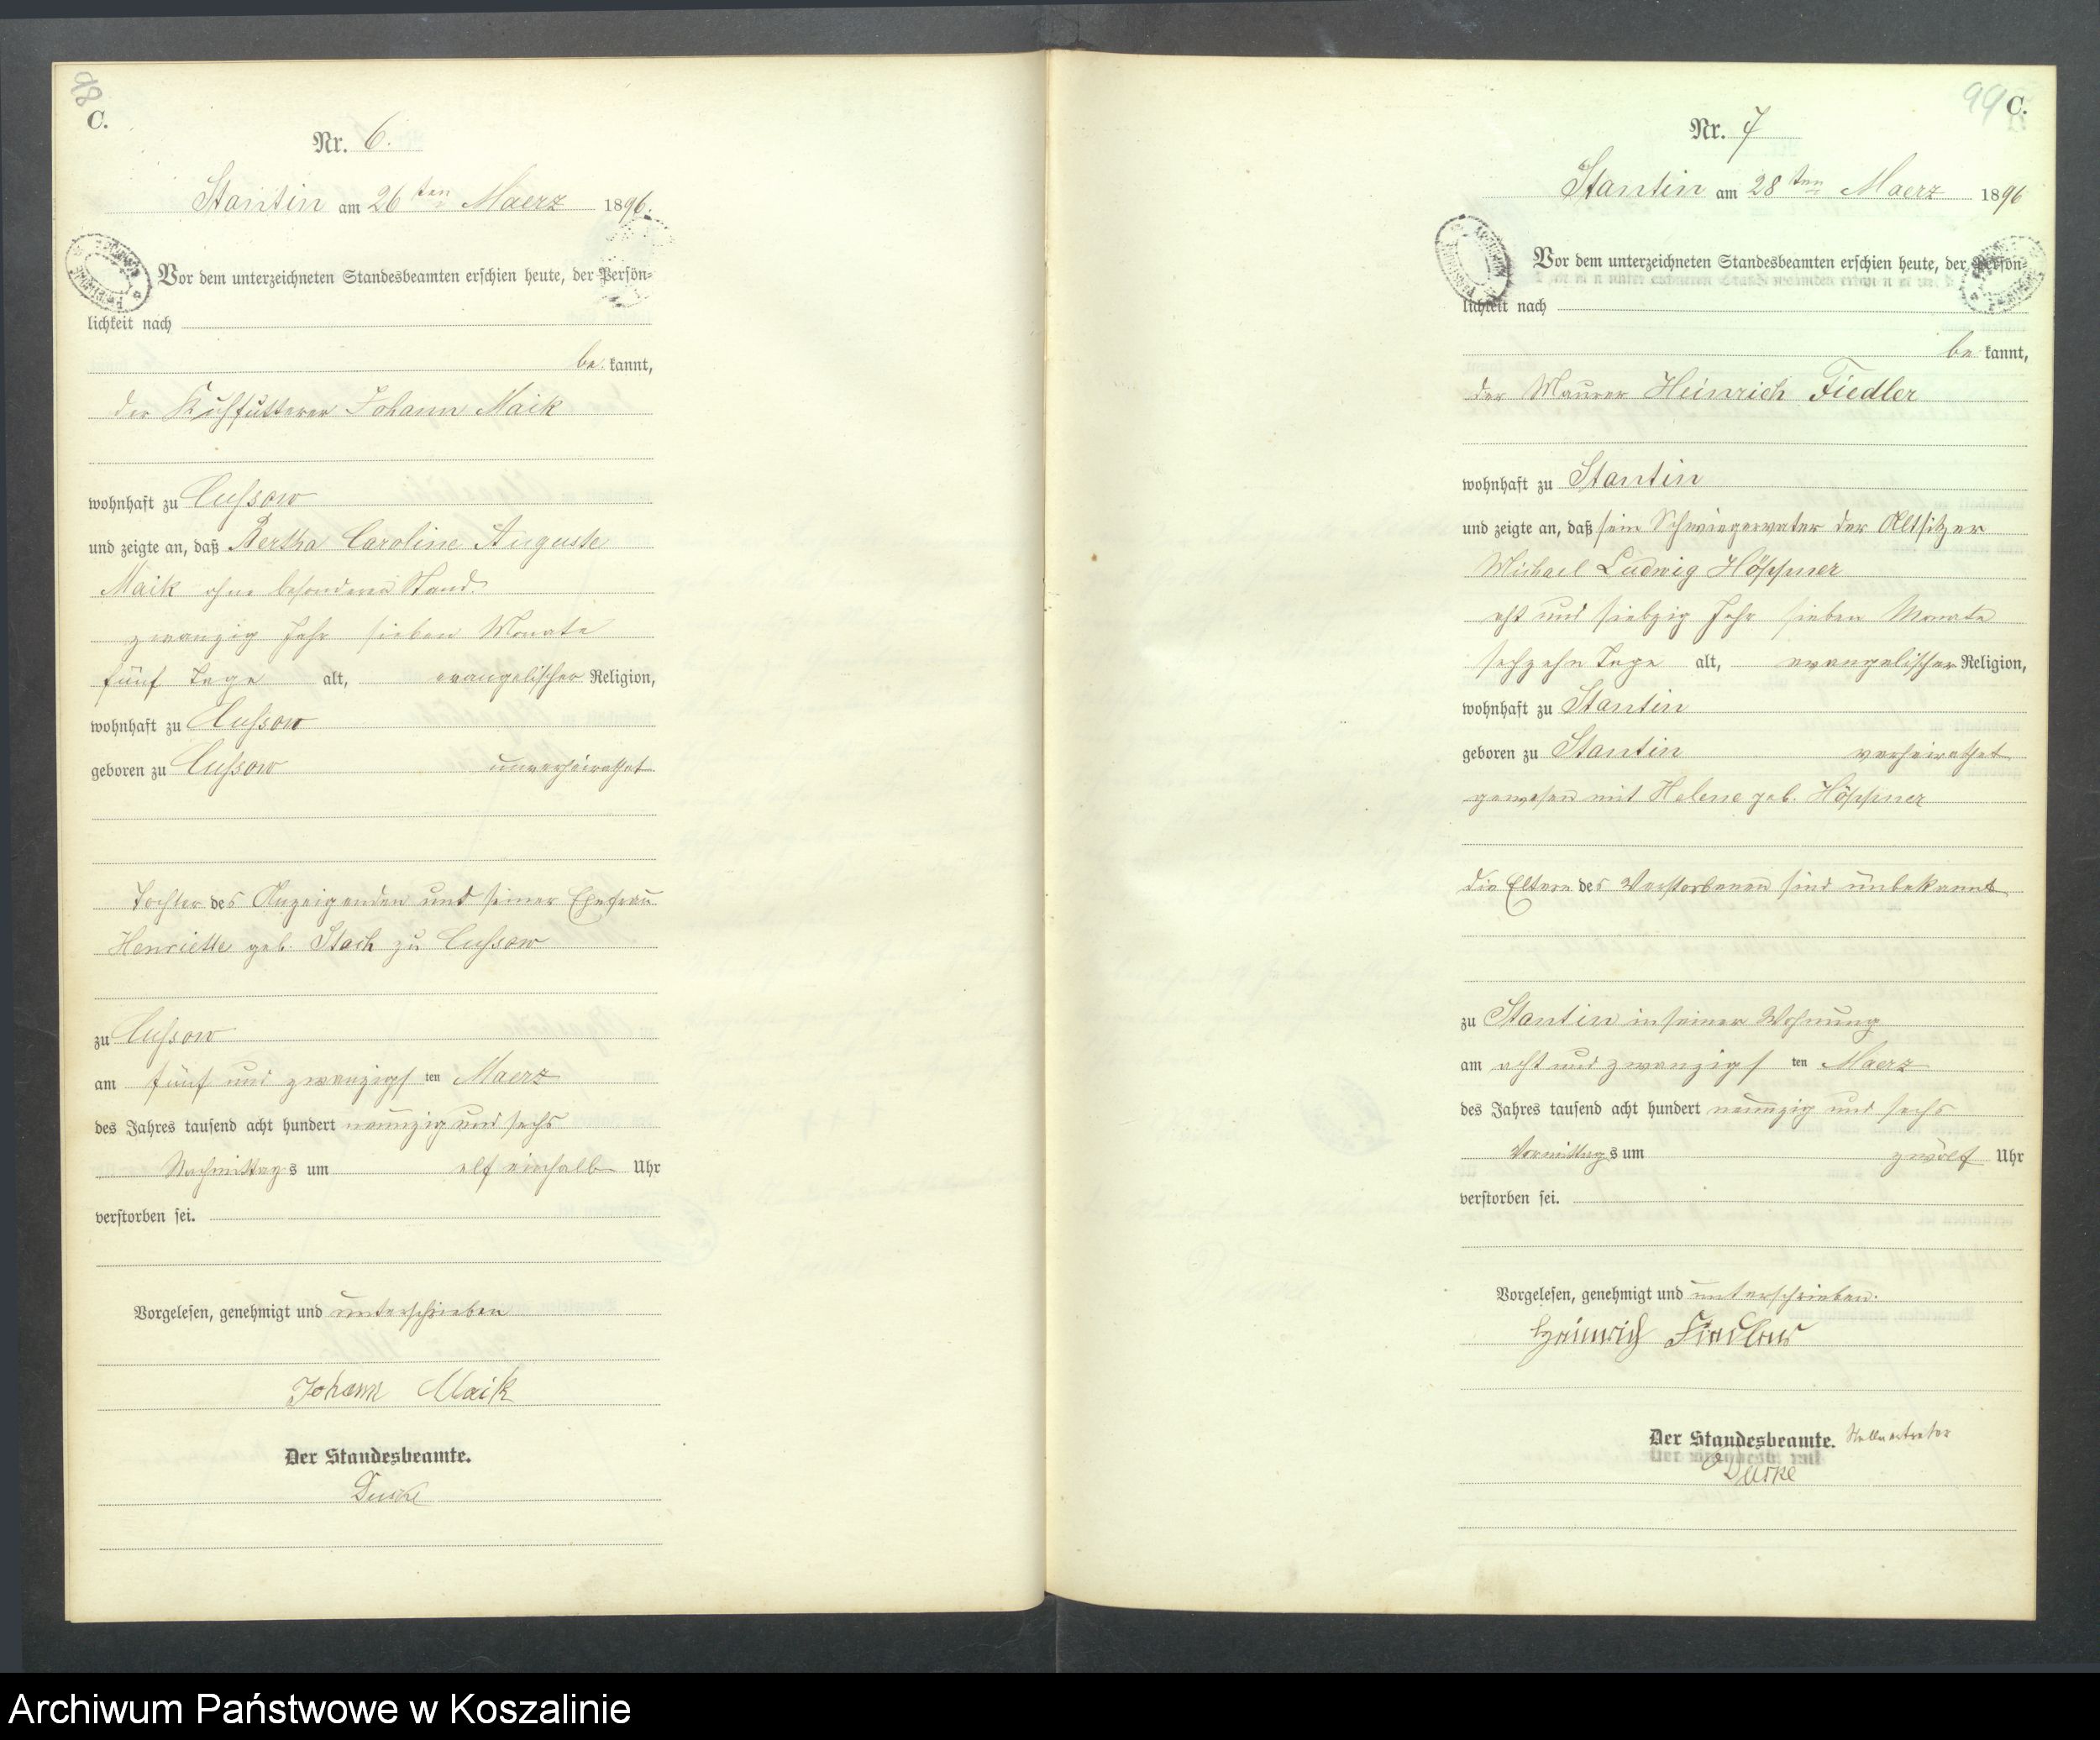 98
C.
Nr. 6.
Stantin am 26 ten Maerz 1896.
Vor dem unterzeichneten Standesbeamten erschien heute, der Persön=
lichkeit nach
be kannt,
der Kuhfütterer Johann Maik
wohnhaft zu Cussow
und zeigte an, daß Bertha Caroline Auguste
Maik ohne besonderen Stand
zwanzig Jahr sieben Monate
fünf Tage alt, evangelischer Religion,
wohnhaft zu Cussow
geboren zu Cussow unverheirathet
Tochter des Anzeigenden und seiner Ehefrau
Henriette geb. Stach zu Cussow
zu Cussow
am fünf und zwanzigs ten Maerz
des Jahres tausend acht hundert neunzig und sechs
Nachmittag s um elf einhalb Uhr
verstorben sei.
Vorgelesen, genehmigt und unterschrieben
Johann Maik
Der Standesbeamte.
99
C.
Nr. 7
Stantin am 28 ten Maerz 1896
Vor dem unterzeichneten Standesbeamten erschien heute, der Persön=
lichkeit nach
be kannt,
der Maurer Heinrich Fiedler
wohnhaft zu Stantin
und zeigte an, daß sein Schwiegervater der Altsitzer
Michael Ludwig Höppner
acht und siebzig Jahr sieben Monate
sechzehn Tage alt, evangelischer Religion,
wohnhaft zu Stantin
geboren zu Stantin verheirathet
gewesen mit Helene geb. Höppner
die Eltern des Verstorbenen sind unbekannt
zu Stantin in seiner Wohnung
am acht und zwanzigs ten Maerz
des Jahres tausend acht hundert neunzig und sechs
Vormittag s um zwölf Uhr
verstorben sei.
Vorgelesen, genehmigt und unterschrieben.
Heinrich Fiedler
Der Standesbeamte. Stellvertreter
Archiwum Państwowe w Koszalinie